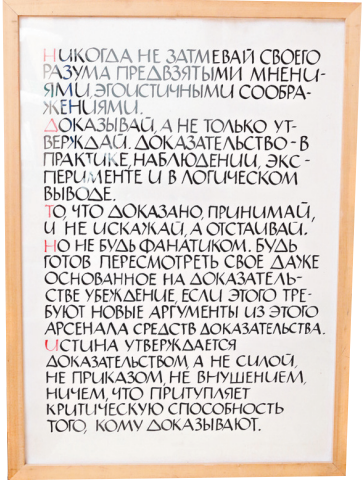 НИКОГДА НЕ ЗАТМЕВАЙ СВОЕГО
РАЗУМА ПРЕДВЗЯТЫМИ МНЕНИ-
ЯМИ, ЭГОИСТИЧНЫМИ СООБРА-
ЖЕНИЯМИ.
ДОКАЗЫВАЙ, А НЕ ТОЛЬКО УТ-
ВЕРЖДАЙ. ДОКАЗАТЕЛЬСТВО - В
ПРАКТИКЕ, НАБЛЮДЕНИИ, ЭКС-
ПЕРИМЕНТЕ И В ЛОГИЧЕСКОМ
ВЫВОДЕ.
ТО, ЧТО ДОКАЗАНО, ПРИНИМАЙ,
И НЕ ИСКАЖАЙ, А ОТСТАИВАЙ.
НО НЕ БУДЬ ФАНАТИКОМ. БУДЬ
ГОТОВ ПЕРЕСМОТРЕТЬ СВОЕ ДАЖЕ
ОСНОВАННОЕ НА ДОКАЗАТЕЛЬ-
СТВЕ УБЕЖДЕНИЕ, ЕСЛИ ЭТОГО ТРЕ-
БУЮТ НОВЫЕ АРГУМЕНТЫ ИЗ ЭТОГО
АРСЕНАЛА СРЕДСТВ ДОКАЗАТЕЛЬСТВА.
ИСТИНА УТВЕРЖДАЕТСЯ
ДОКАЗАТЕЛЬСТВОМ, А НЕ СИЛОЙ,
НЕ ПРИКАЗОМ, НЕ ВНУШЕНИЕМ,
НИЧЕМ, ЧТО ПРИТУПЛЯЕТ
КРИТИЧЕСКУЮ СПОСОБНОСТЬ
ТОГО, КОМУ ДОКАЗЫВАЮТ.